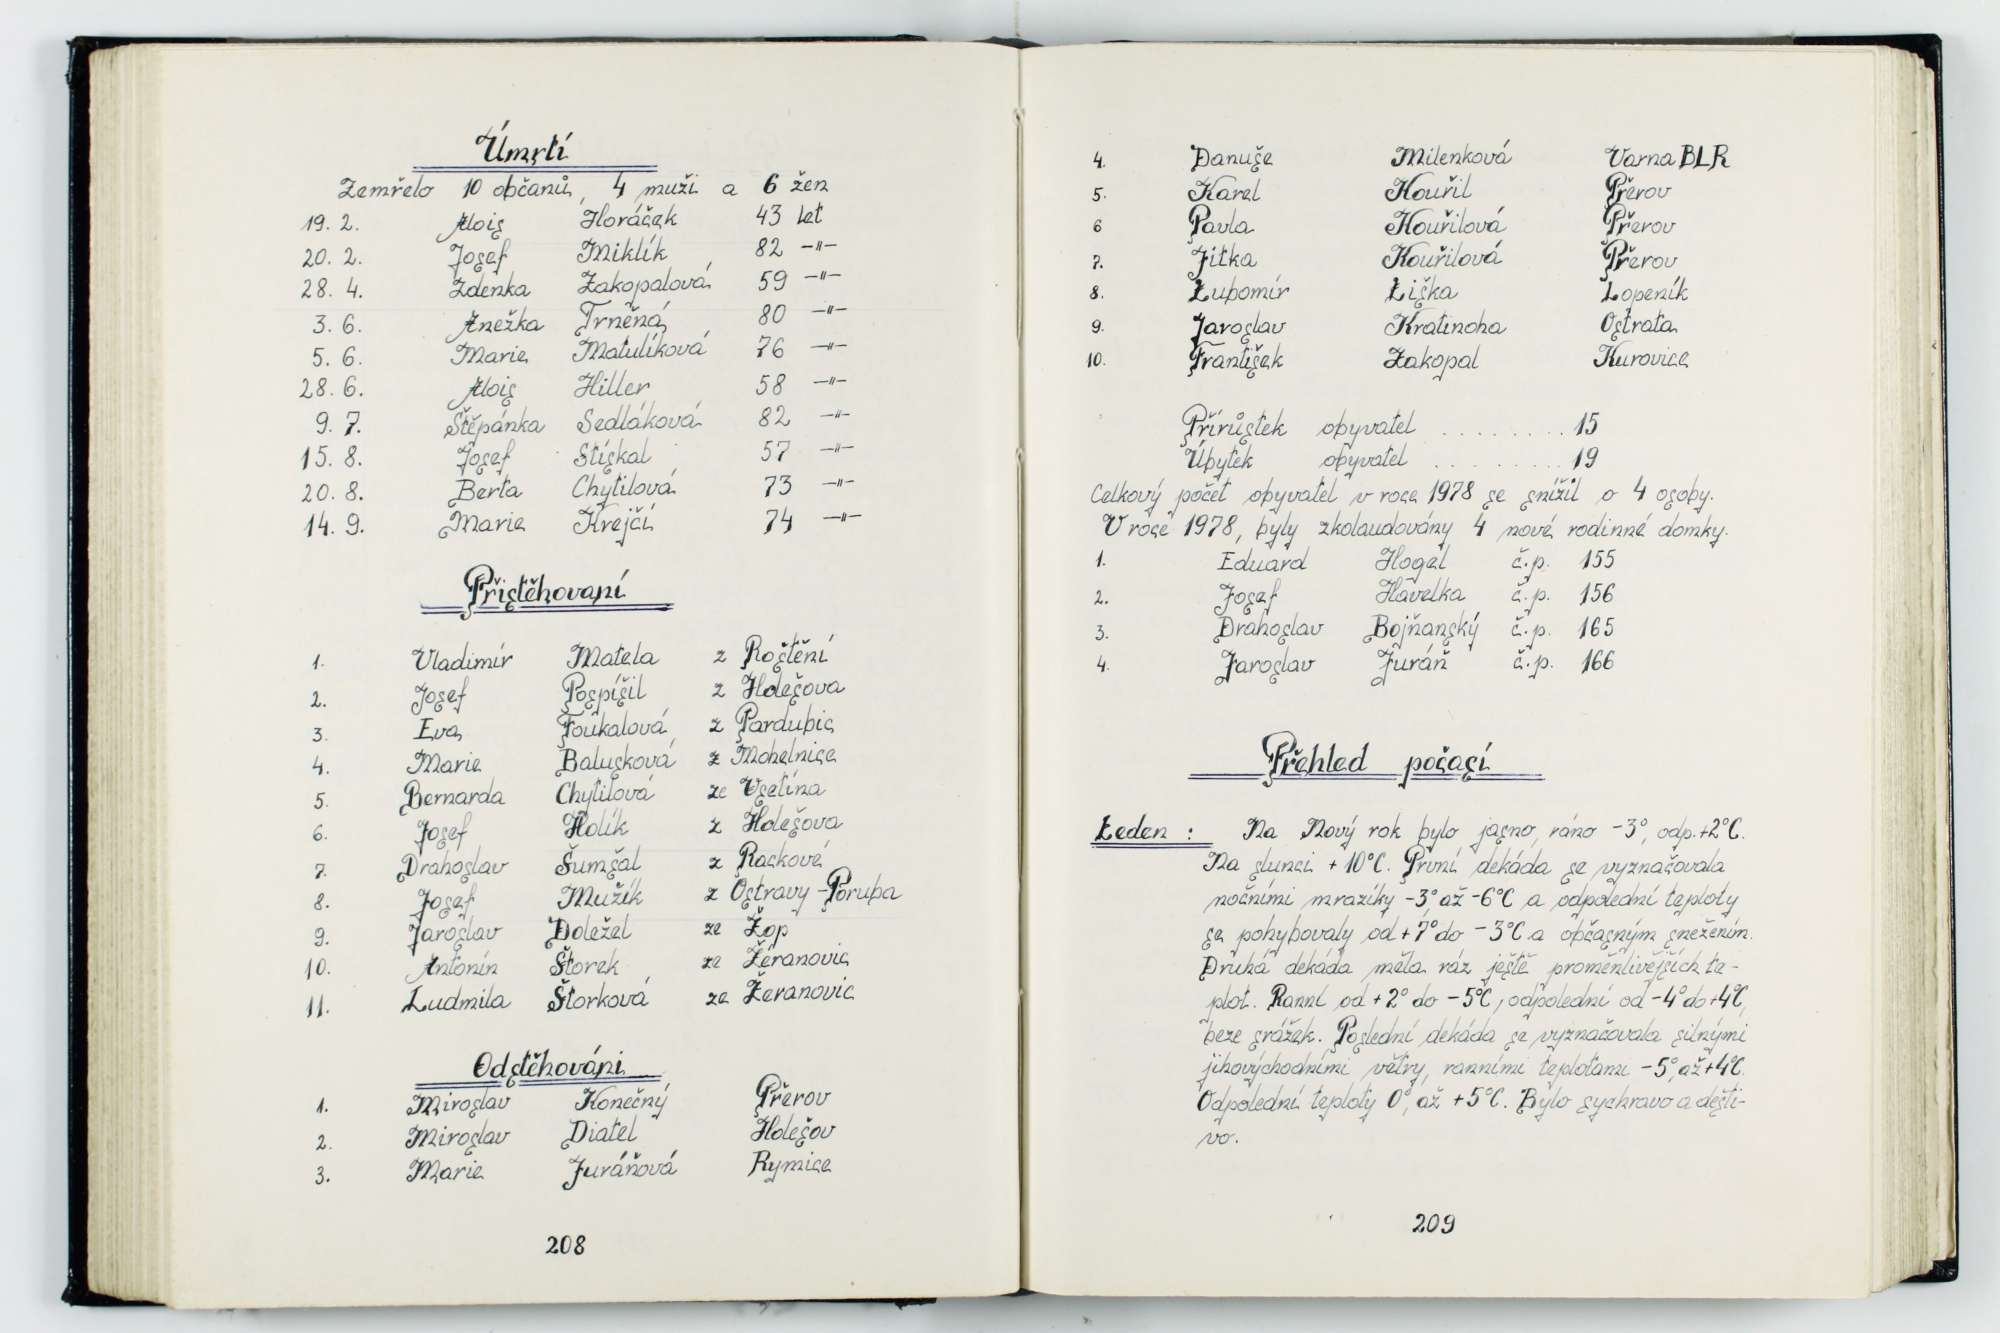 Úmrtí
Zemřelo 10 občanů, 4 muži a 6 žen
19. 2. Alois Horáček 43 let
20. 2. Josef Miklík 82 -"-
28. 4. Zdenka Zakopalová 59 -"-
3. 6. Anežka Trněná 80 -"-
5. 6. Marie Matulíková 76 -"-
28. 6. Alois Hiller 58 -"-
9. 7. Štěpánka Sedláková 82 -"-
15. 8. Josef Stískal 57 -"-
20. 8. Berta Chytilová 73 -"-
14. 9. Marie Krejčí 74 -"-
Přistěhovaní
1. Vladimír Matela z Roštění
2. Josef Pospíšil z Holešova
3. Eva Foukalová z Pardubic
4. Marie Balusková z Mohelnice
5. Bernarda Chytilová ze Vsetína
6. Josef Holík z Holešova
7. Drahoslav Šumšal z Rackové
8. Josef Mužík z Ostravy-Poruba
9. Jaroslav Doležel ze Žop
10. Antonín Štorek ze Žeranovic
11. Ludmila Štorková ze Žeranovic
Odstěhováni
1. Miroslav Konečný Přerov
2. Miroslav Diatel Holešov
3. Marie Juráňová Rymice
208
4. Danuše Milenková Varna BLR
5. Karel Kouřil Přerov
6 Pavla Kouřilová Přerov
7. Jitka Kouřilová Přerov
8. Lubomír Liška Lopeník
9. Jaroslav Kratinoha Ostrata
10. František Zakopal Kurovice
Přírůstek obyvatel ........ 15
Úbytek obyvatel ......... 19
Celkový počet obyvatel v roce 1978 se snížil o 4 osoby.
V roce 1978, byly zkolaudovány 4 nové rodinné domky.
1. Eduard Hogel č.p. 155
2. Josef Havelka č.p. 156
3. Drahoslav Bojňanský č.p. 165
4. Jaroslav Juráň č.p. 166
Přehled počasí
Leden : Na Nový rok bylo jasno, ráno -3°, odp. +2°C.
Na slunci +10°C. První dekáda se vyznačovala
nočními mrazíky -3°, až -6°C a odpolední teploty
se pohybovaly od +7° do -3°C a občasným sněžením.
Druhá dekáda měla ráz ještě proměnlivějších te-
plot. Ranní od +2° do -5°C, odpolední od -4° do +4°C,
beze srážek. Poslední dekáda se vyznačovala silnými
jihovýchodními větry, ranními teplotami -5°, až +4°C.
Odpolední teploty 0°, až +5°C. Bylo sychravo a dešti-
vo.
209